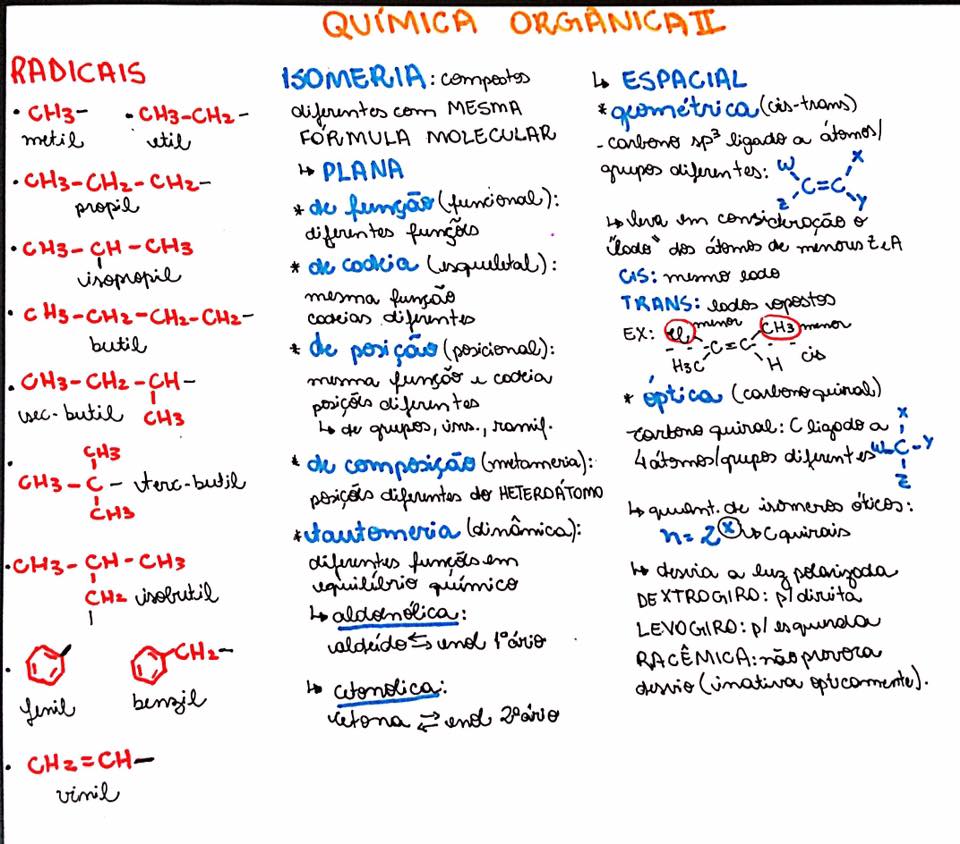 QUÍMICA ORGÂNICA II
RADICAIS
• CH3-
metil
• CH3-CH2-
etil
• CH3-CH2-CH2-
propil
• CH3-CH-CH3
isopropil
• CH3-CH2-CH2-CH2-
butil
• CH3-CH2-CH-
sec-butil CH3
CH3
• CH3-C- terc-butil
CH3
• CH3-CH-CH3
CH2 isobutil
• fenil
CH2-
benzil
• CH2=CH-
vinil
ISOMERIA: compostos
diferentes com MESMA
FÓRMULA MOLECULAR
↳ PLANA
* de função (funcional):
diferentes funções
* de cadeia (esqueletal):
mesma função
cadeias diferentes
* de posição (posicional):
mesma função e cadeia
posições diferentes
↳ de grupos, ins., ramif.
* de composição (metameria):
posições diferentes do HETEROÁTOMO
* tautomeria (dinâmica):
diferentes funções em
equilíbrio químico
↳ aldoenólica:
aldeído ⇆ enol 1º ário
↳ cetonólica:
cetona ⇄ enol 2º ário
↳ ESPACIAL
* geométrica (cis-trans)
- carbono sp³ ligado a átomos/
grupos diferentes: W X
C=C
Z Y
↳ leva em consideração o
"lado" dos átomos de menores Z e A
CIS: mesmo lado
TRANS: lados opostos
EX: menor CH3 menor
C=C
H3C H cis
* óptica (carbono quiral)
carbono quiral: C ligado a X
4 átomos/grupos diferentes W-C-Y
Z
↳ quant. de isômeros óticos:
n=2ˣ ↳ C quirais
↳ desvia a luz polarizada
DEXTROGIRO: p/ direita
LEVOGIRO: p/ esquerda
RACÊMICA: não provoca
desvio (inativa opticamente).